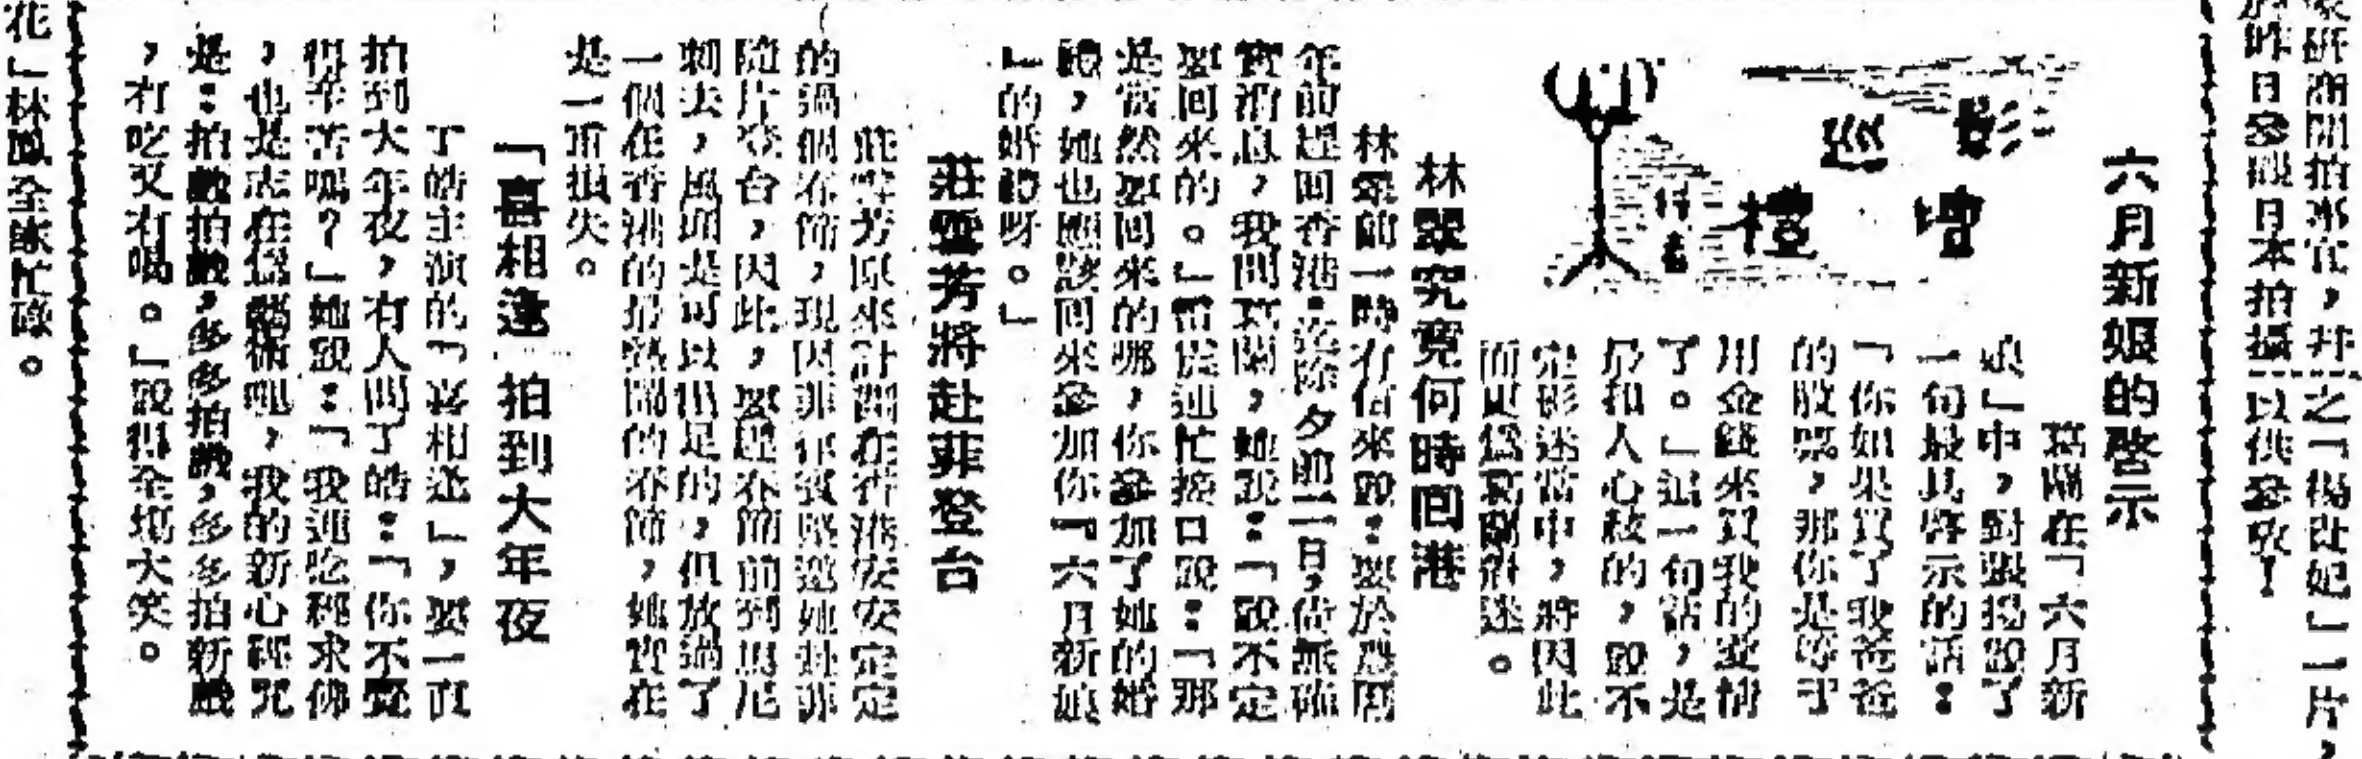 六月新娘的啓示
影壇
巡禮
葛蘭在「六月新
娘」中，對張揚說了
一句最具啓示的話：
「你如果買了我爸爸
的股票，那你是等于
用金錢來買我的愛情
了。」這一句話，是
最扣人心弦的，說不
定影迷當中，將因此
而更爲葛蘭着迷。
林翠究竟何時回港
林翠前一時有信來說：要於農曆
年前趕回香港，迄除夕前二日，尚無確
實消息，我問葛蘭，她說：「說不定
要回來的。」雷震連忙接口說：「那
是當然要回來的哪，你參加了她的婚
禮，她也應該回來參加你『六月新娘
』的婚禮呀。」
莊雪芳將赴菲登台
莊雪芳原來計劃在香港安安定定
的過個春節，現因菲律賓堅邀她赴菲
隨片登台，因此，要趕春節前到馬尼
剌去，風頭是可以出足的，但放過了
一個在香港的最熱鬧的春節，她實在
是一重損失。
「喜相逢 拍到大年夜
丁皓主演的「喜相逢」，要一直
拍到大年夜，有人問丁皓：「你不覺
得辛苦嗎？」她說：「我連吃經求佛
，也是志在爲藝術呢，我的新心經咒
是：拍戲拍戲，多多拍戲，多多拍新戲
，有吃又有喝。」說得全場大笑。
花」林鳳全家忙碌。
於昨日參觀日本拍攝
之「楊貴妃」一片，
以供參攷！